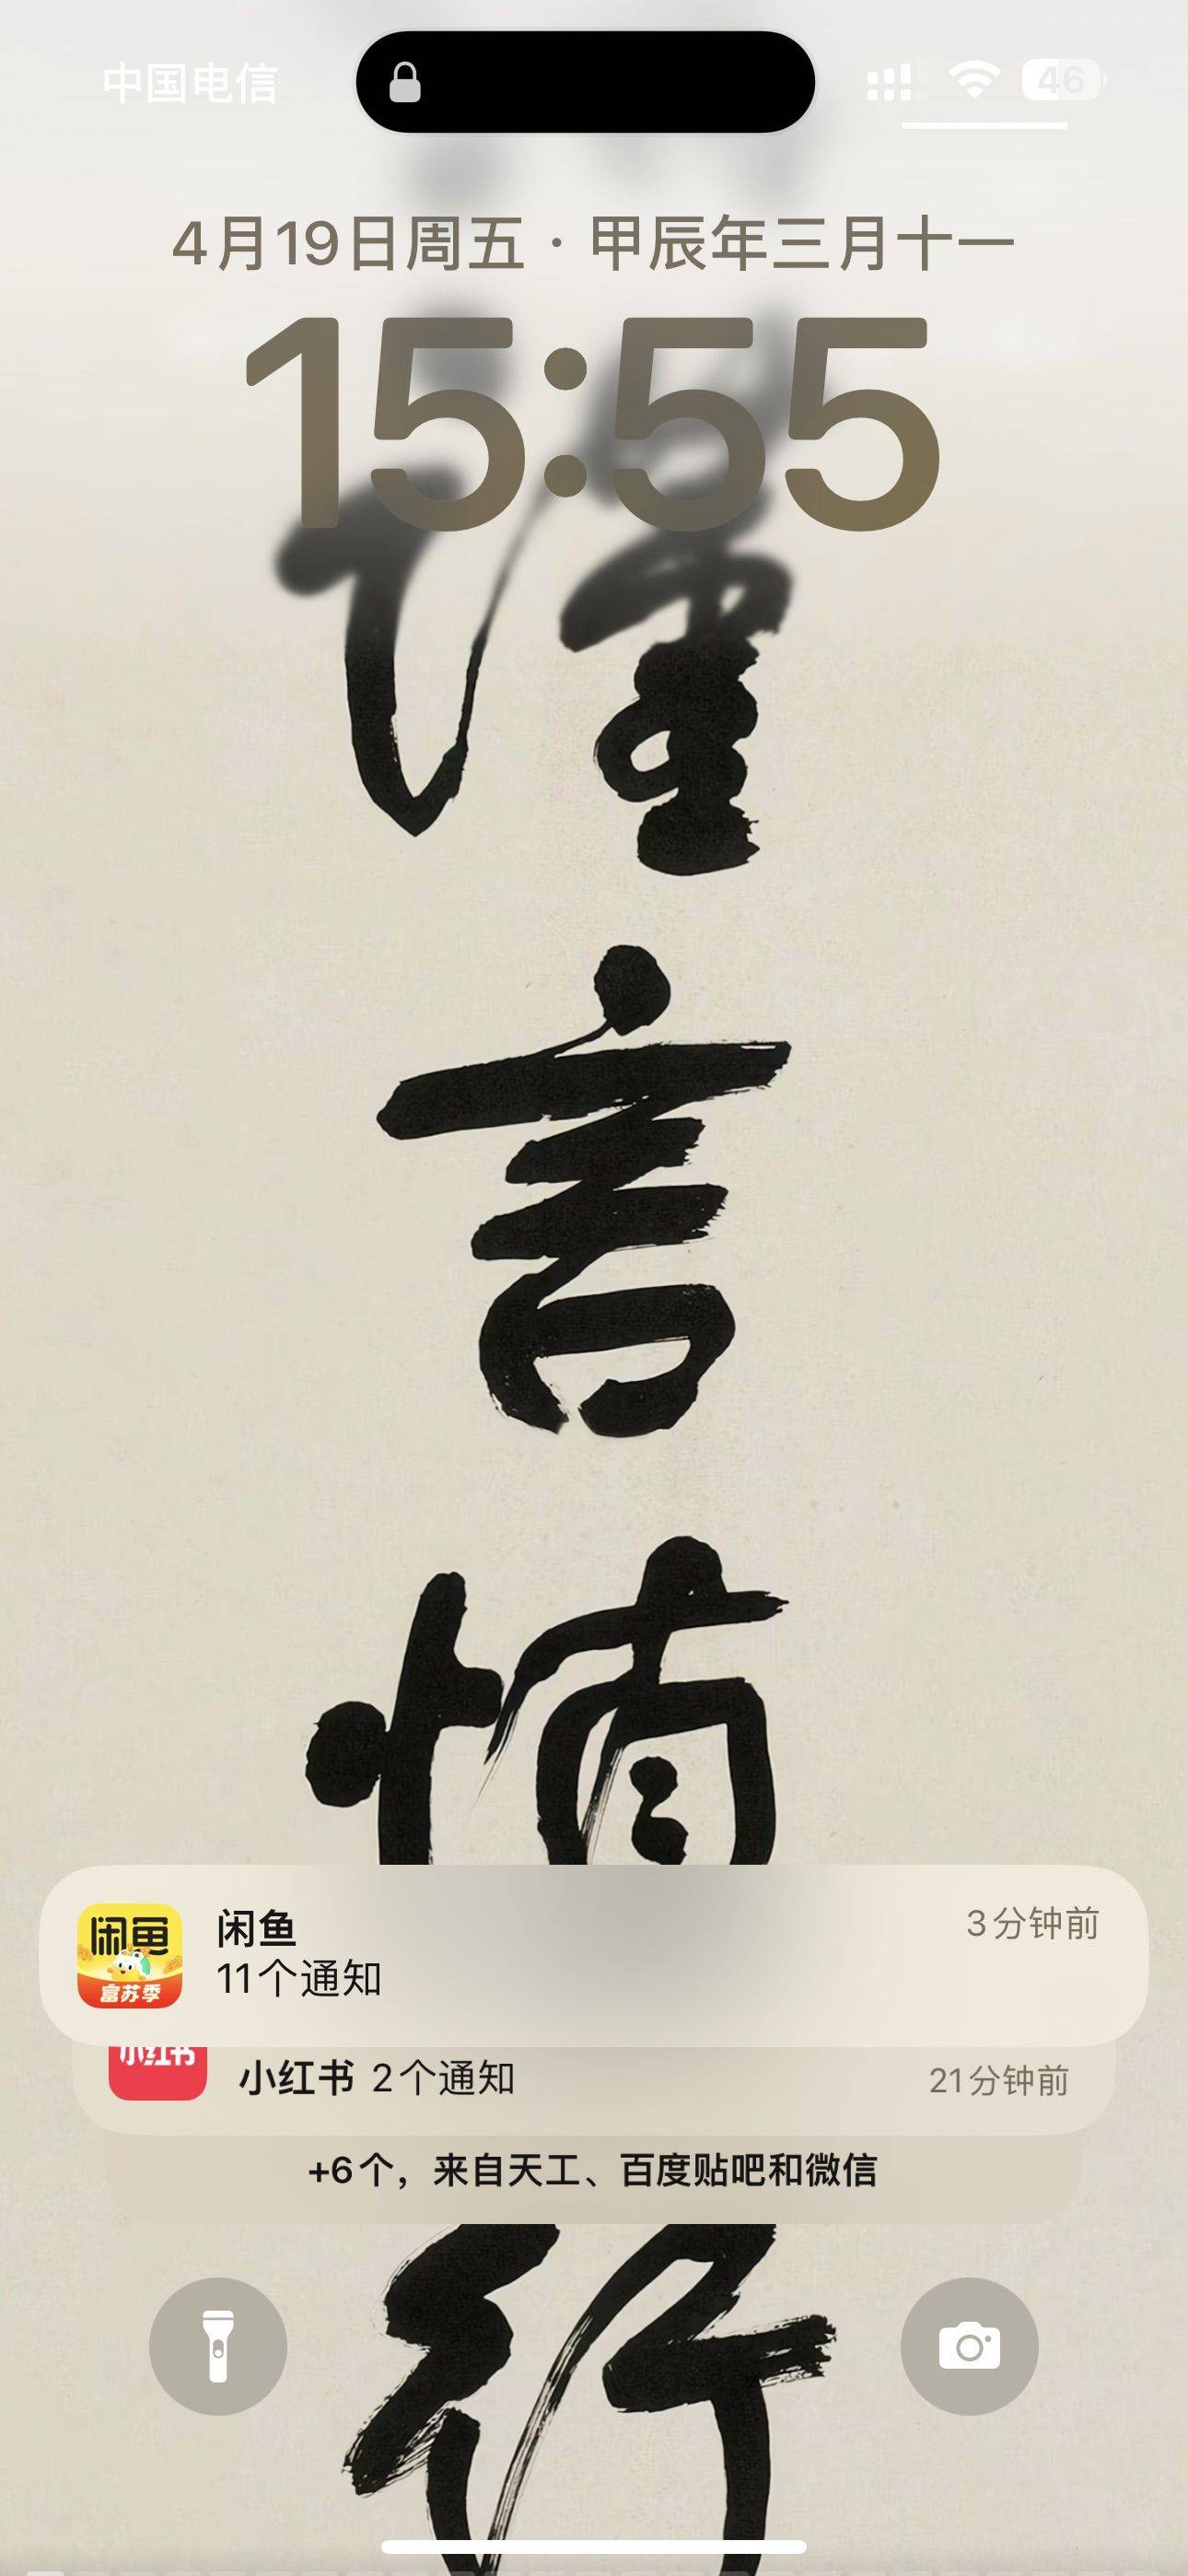 中国电信
46
4月19日周五 · 甲辰年三月十一
15:55
谨
言
慎
行
闲鱼
富苏季
闲鱼
3分钟前
11个通知
小红书
小红书 2个通知
21分钟前
+6个，来自天工、百度贴吧和微信